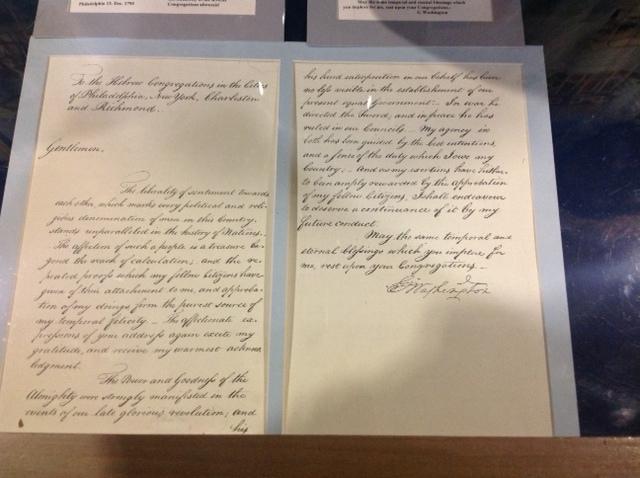 Philadelphia 13. Dec. 1790
Congregations
you implore for me, rest upon your Congregations.
G. Washington
To the Hebrew Congregations in the Cities
of Philadelphia, New York, Charleston
and Richmond.
Gentlemen,
The liberality of sentiment towards
each other, which marks every political and reli-
gious denomination of men in this Country,
stands unparalleled in the history of Nations.
The affection of such a people is a treasure be-
yond the reach of calculation; and the re-
peated proofs which my fellow Citizens have
given of their attachment to me, and approba-
tion of my doings form the purest source of
my temporal felicity. — The affectionate ex-
pressions of your address again excite my
gratitude, and receive my warmest acknow-
ledgment.
The Power and Goodness of the
Almighty were strongly manifested in the
events of our late glorious revolution; and
his
his kind interposition in our behalf has been
no less visible in the establishment of our
present equal Government. — In war he
directed the Sword, and in peace he has
ruled in our Councils. — My agency in
both has been guided by the best intentions,
and a sense of the duty which I owe my
Country: — And as my exertions have hither-
to been amply rewarded by the approbation
of my fellow Citizens, I shall endeavour
to deserve a continuance of it by my
future conduct.
May the same temporal and
eternal blessings which you implore for
me, rest upon your Congregations. —
G. Washington